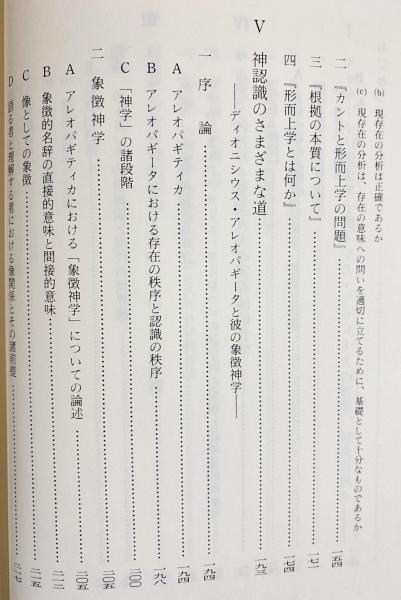 (b) 現存在の分析は正確であるか
(c) 現存在の分析は、存在の意味への問いを適切に立てるために、基礎として十分なものであるか
二 『カントと形而上学の問題』……一五四
三 『根拠の本質について』……一七一
四 『形而上学とは何か』……一七四
V 神認識のさまざまな道……一九三
――ディオニシウス・アレオパギータと彼の象徴神学――
一 序論……一九四
A アレオパギティカ……一九四
B アレオパギータにおける存在の秩序と認識の秩序……一九八
C 「神学」の諸段階……二〇〇
二 象徴神学……二〇五
A アレオパギティカにおける「象徴神学」についての論述……二〇五
B 象徴的名辞の直接的意味と間接的意味……二一二
C 像としての象徴……二一五
D 語る者と理解する者における像関係とその諸前提……二一七